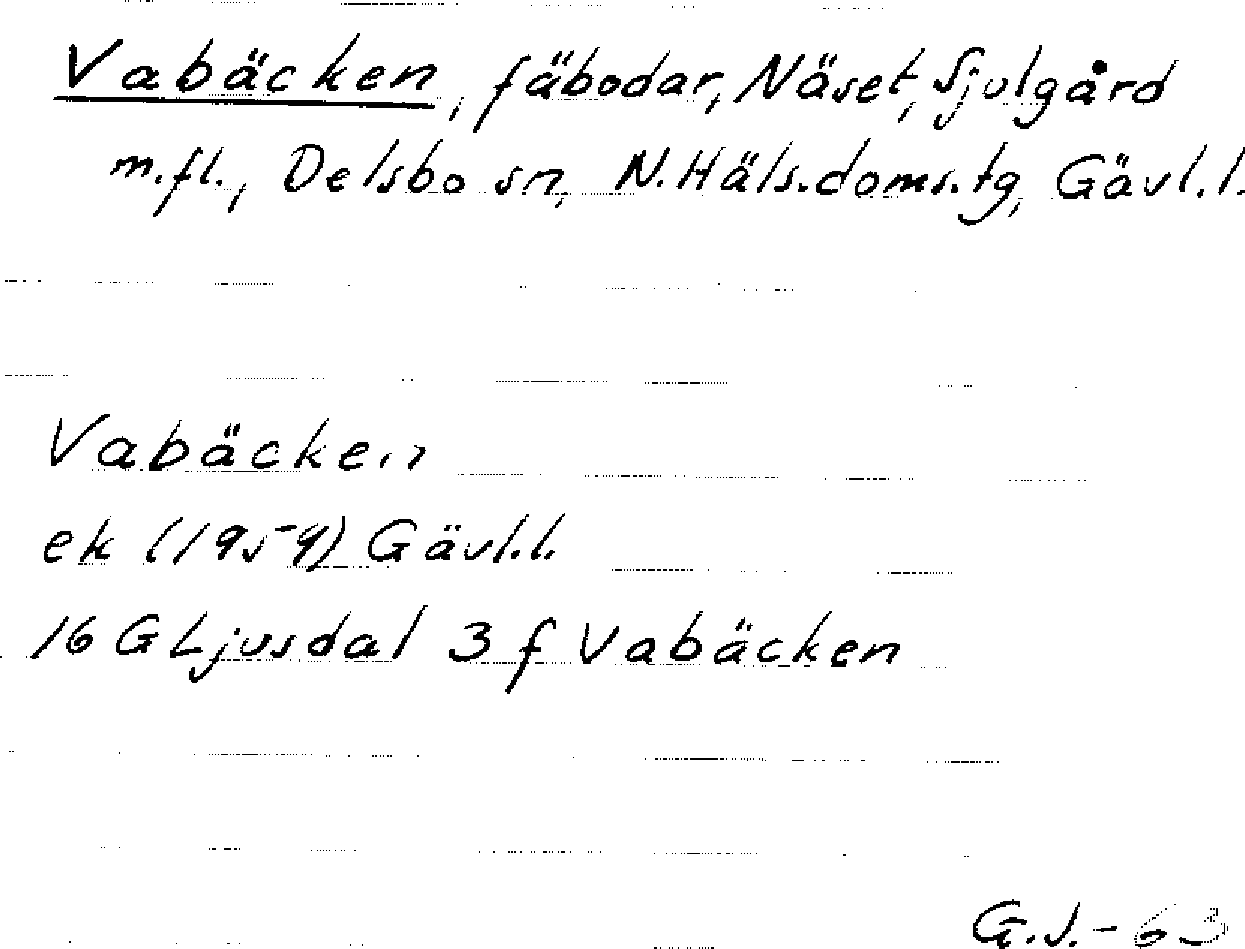 Vabäcken, fäbodar, Näset, Sjulgård
m.fl., Delsbo sn, N.Häls.doms.tg, Gävl.l.
Vabäcken
ek (1959) Gävl.l.
16 G Ljusdal 3 f Vabäcken
G.J.-63